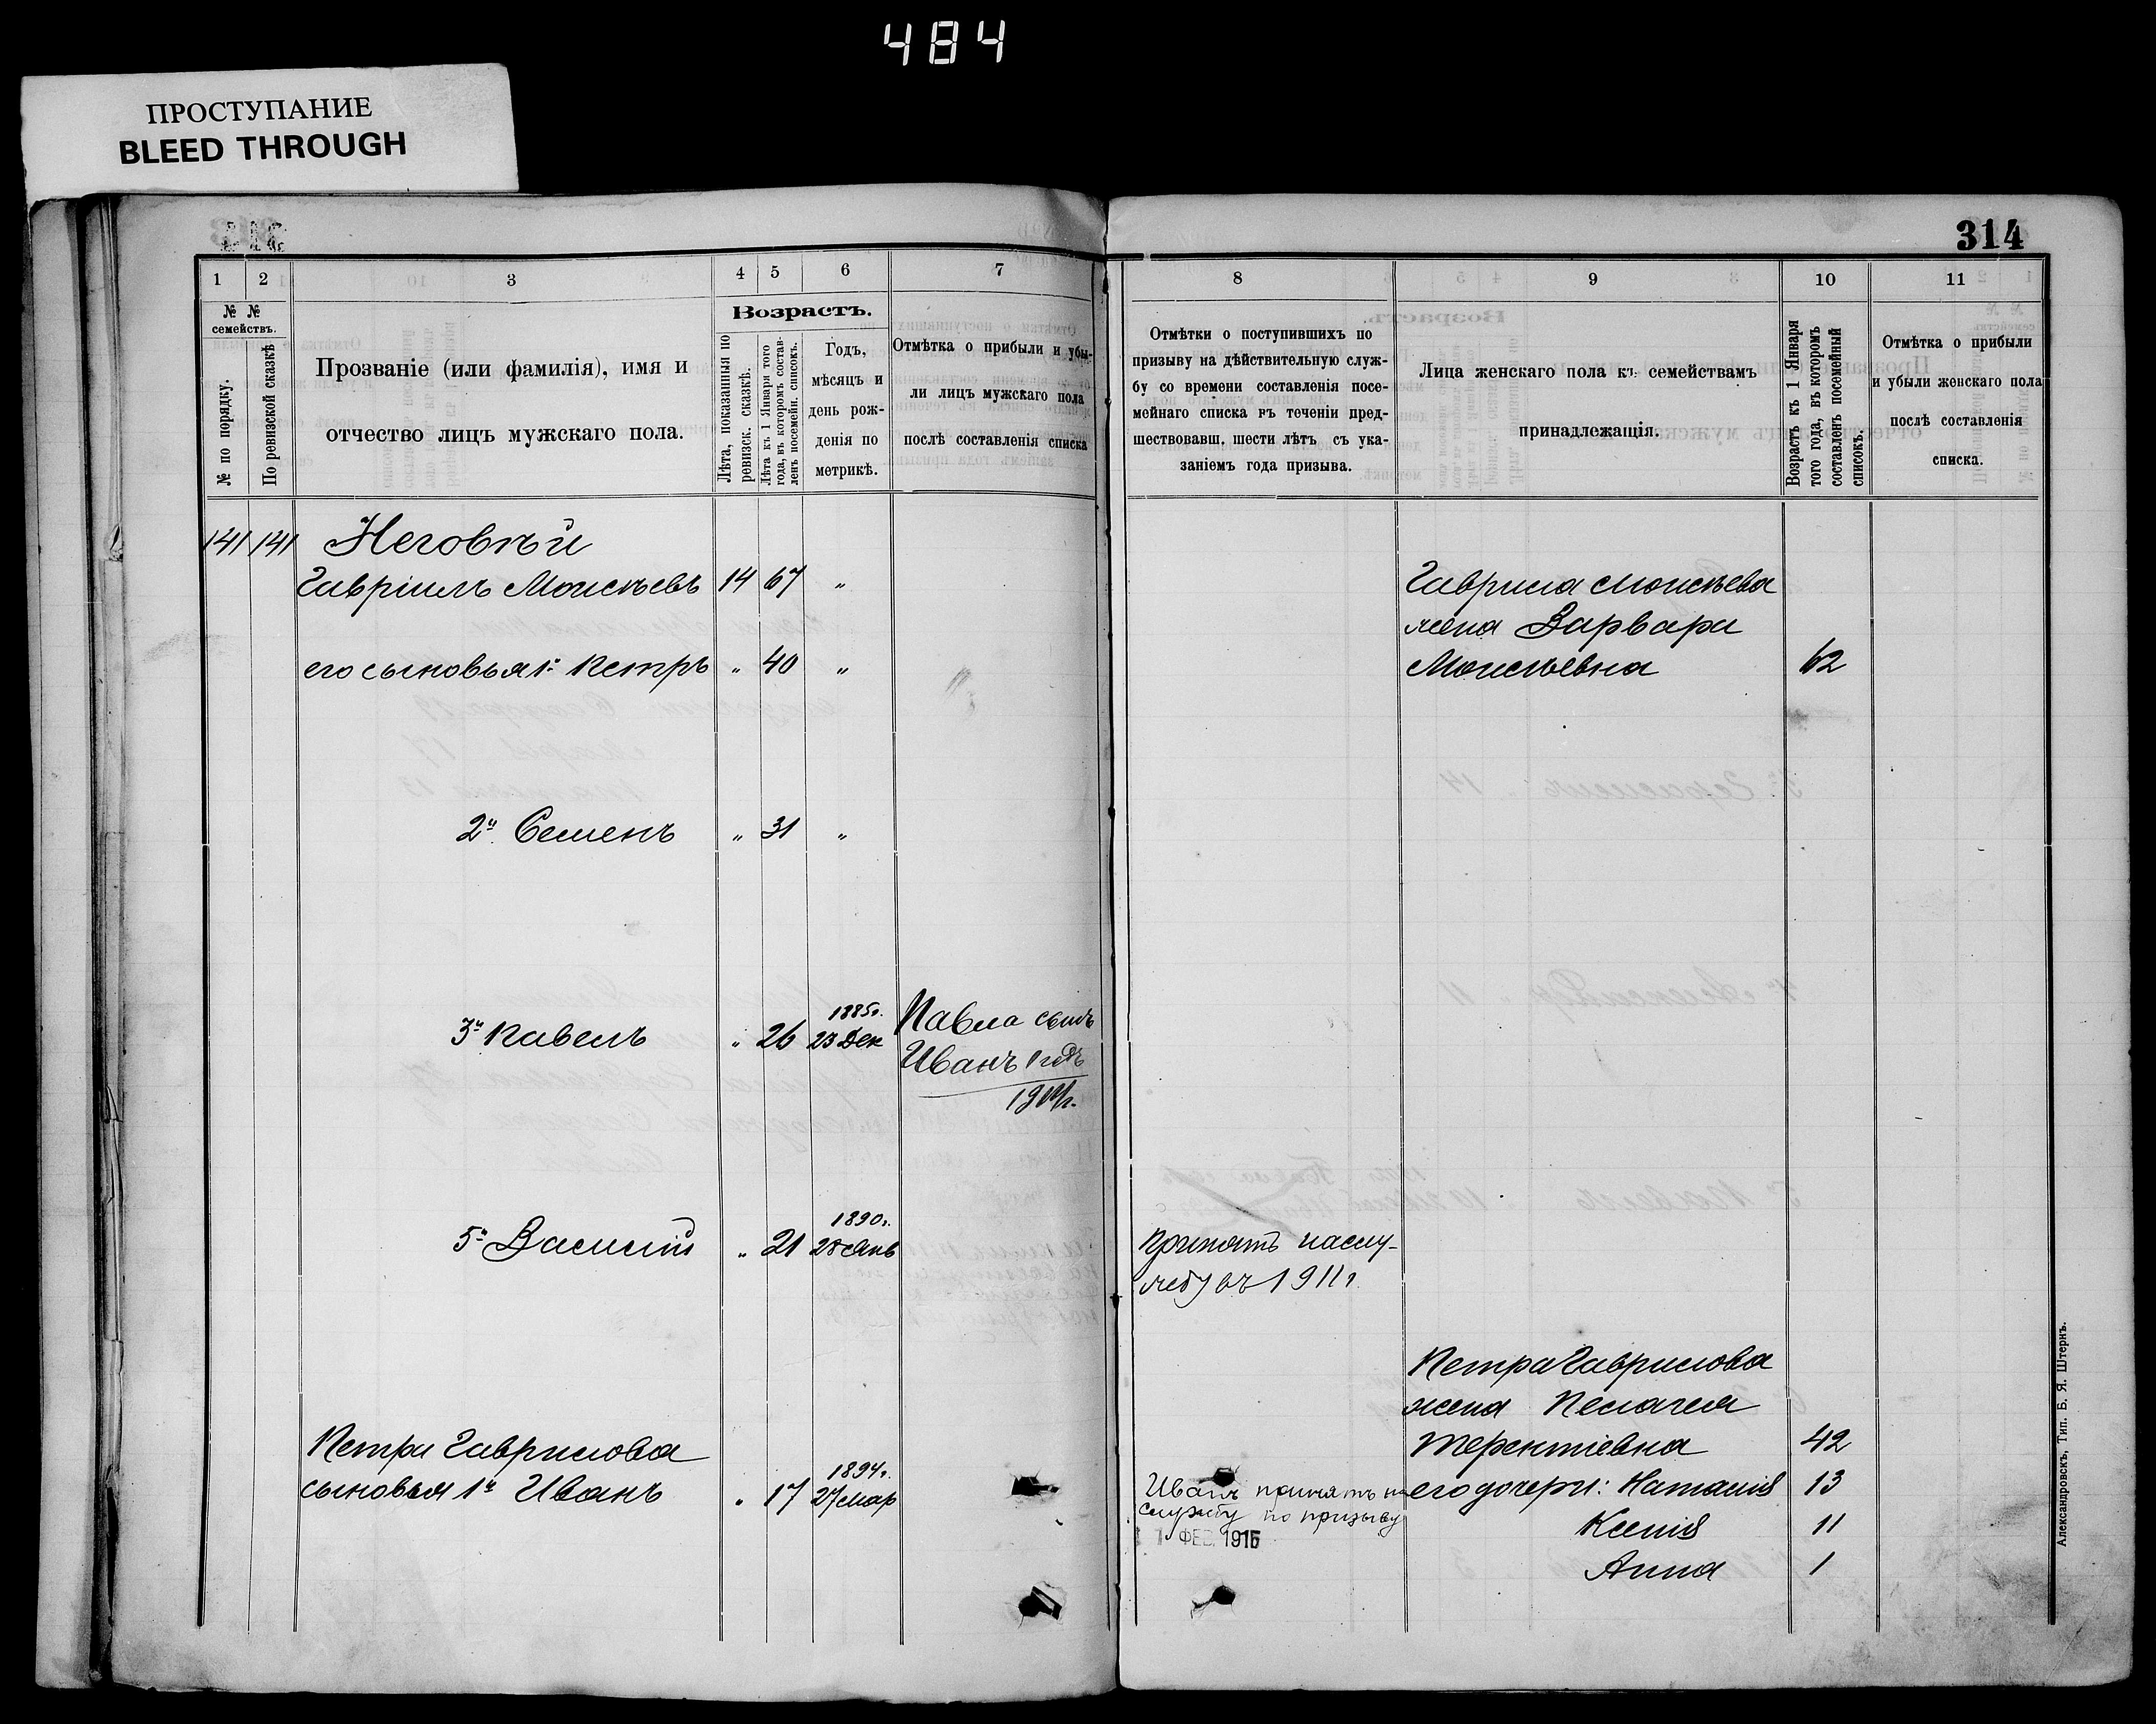 484
ПРОСТУПАНИЕ
BLEED THROUGH
314
1 2 3 4 5 6 7
№ № семействъ.
№ по порядку.
По ревизской сказкѣ
Прозваніе (или фамилія), имя и
отчество лицъ мужскаго пола.
Возрастъ.
Лѣта, показанныя по
ревизск. сказкѣ.
Лѣта къ 1 Января того
года, въ которомъ состав-
ленъ посемейн. списокъ.
Годъ,
мѣсяцъ и
день рож-
денія по
метрикѣ.
Отмѣтка о прибыли и убы-
ли лицъ мужскаго пола
послѣ составленія списка
141 141 Неговѣй
Гавріилъ Моисѣевъ 14 67 „
его сыновья 1й Петръ „ 40 „
2й Семенъ „ 31 „
1885г.
3й Павелъ „ 26 23 Дек
Павла сынъ
Иванъ 1 годъ
5й Василій „ 21 28 Янв
1890г.
Петра Гаврилова
1894г.
сыновья 1й Иванъ „ 17 27 Мар
8 9 10 11
Отмѣтки о поступившихъ по
призыву на дѣйствительную служ-
бу со времени составленія посе-
мейнаго списка въ теченіи пред-
шествовавш. шести лѣтъ съ ука-
заніемъ года призыва.
Лица женскаго пола къ семействамъ
принадлежащія.
Возрастъ къ 1 Января
того года, въ которомъ
составленъ посемейный
списокъ.
Отмѣтка о прибыли
и убыли женскаго пола
послѣ составленія
списка.
Гаврила Моисѣева
жена Варвара
Моисѣевна 62
Принятъ на слу-
жбу въ 1911г.
Петра Гаврилова
жена Пелагея
Терентіевна 42
его дочери: Наталія 13
Ксенія 11
Анна 1
Иванъ принятъ на
службу по призыву
ФЕВ. 1915
Александровскъ, Тип. Б. Я. Штернъ.